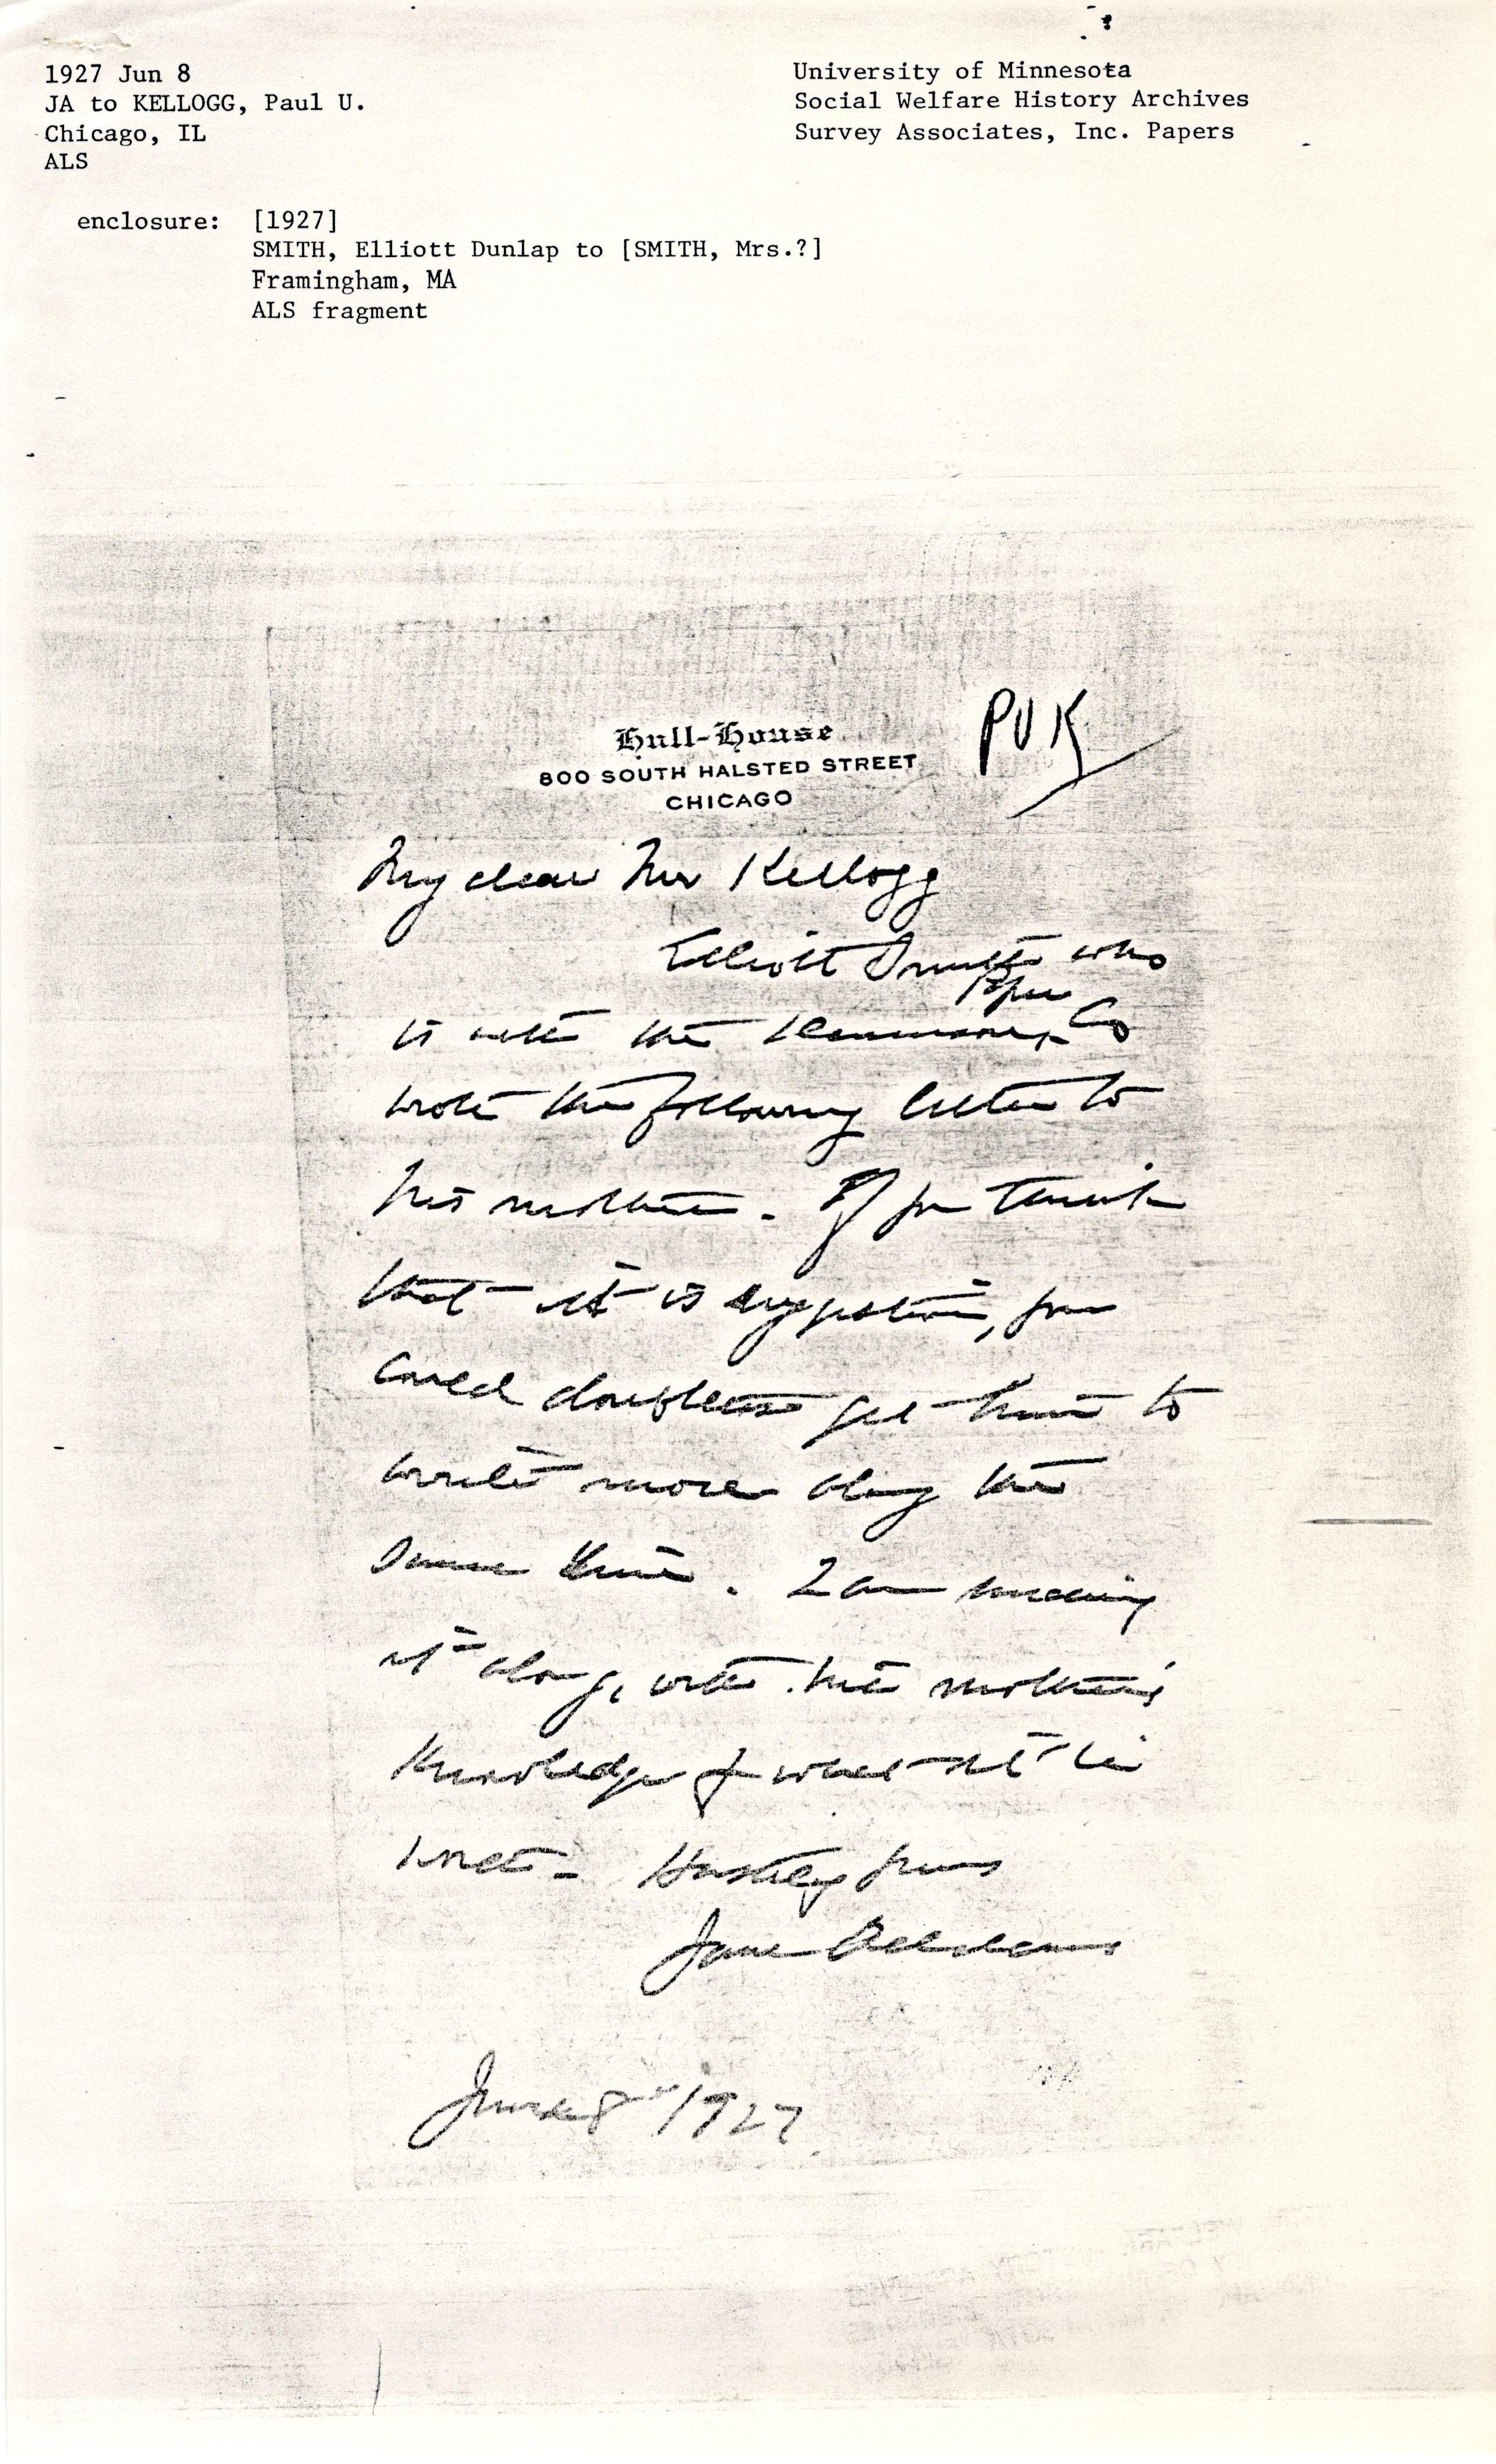 1927 Jun 8
JA to KELLOGG, Paul U.
Chicago, IL
ALS
University of Minnesota
Social Welfare History Archives
Survey Associates, Inc. Papers
enclosure: [1927]
SMITH, Elliott Dunlap to [SMITH, Mrs.?]
Framingham, MA
ALS fragment
Hull-House
800 SOUTH HALSTED STREET
CHICAGO
PUK
My dear Mr Kellogg
Elliott Smith who
is with the Dennison Paper Co
wrote the following letter to
his mother. If you think
that it is suggestive, you
could doubtless get him to
write more along the
same line. I am sending
it along, with his mother's
knowledge of what it is
worth - Hastily yours
Jane Addams
June 8" 1927